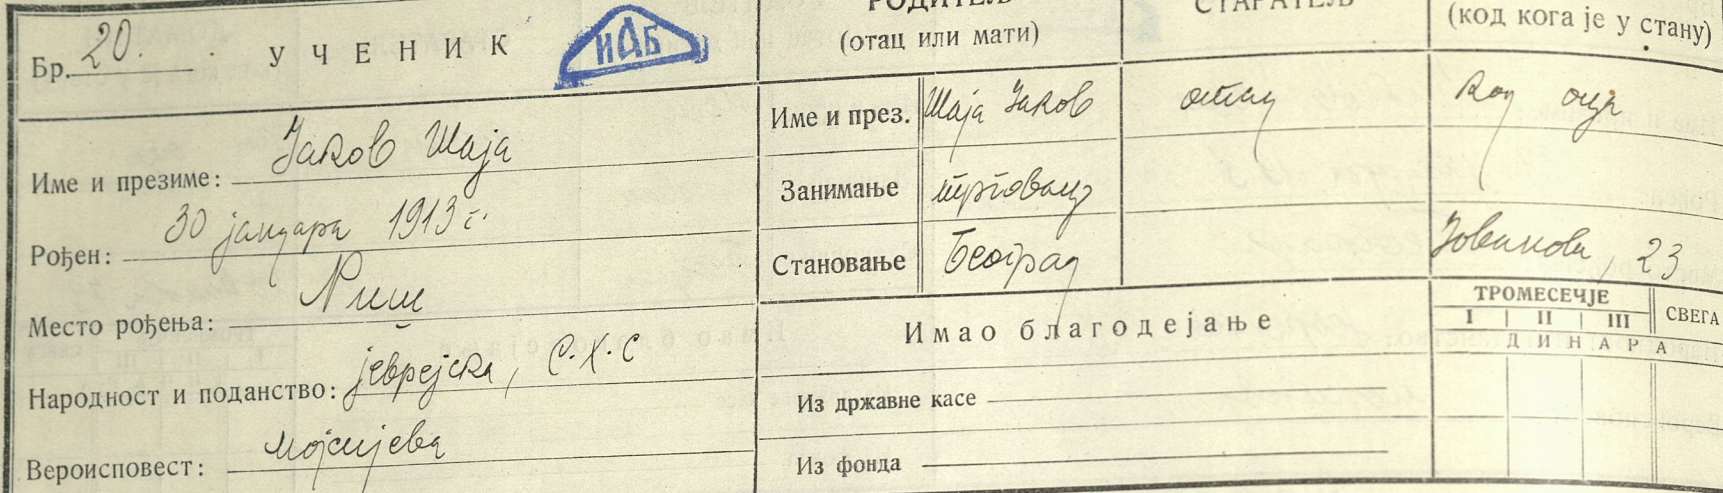 Бр. 20. УЧЕНИК
ИАБ
Име и презиме: Јаков Шаја
Рођен: 30 јануара 1913 г.
Место рођења: Ниш
Народност и поданство: јеврејска, С.Х.С
Вероисповест: мојсијева
РОДИТЕЉ
(отац или мати)
СТАРАТЕЉ
(код кога је у стану)
Име и през. Шаја Јаков отац код оца
Занимање трговац
Становање Београд Јованова, 23
Имао благодејање
ТРОМЕСЕЧЈЕ СВЕГА
I II III
ДИНАРА
Из државне касе
Из фонда